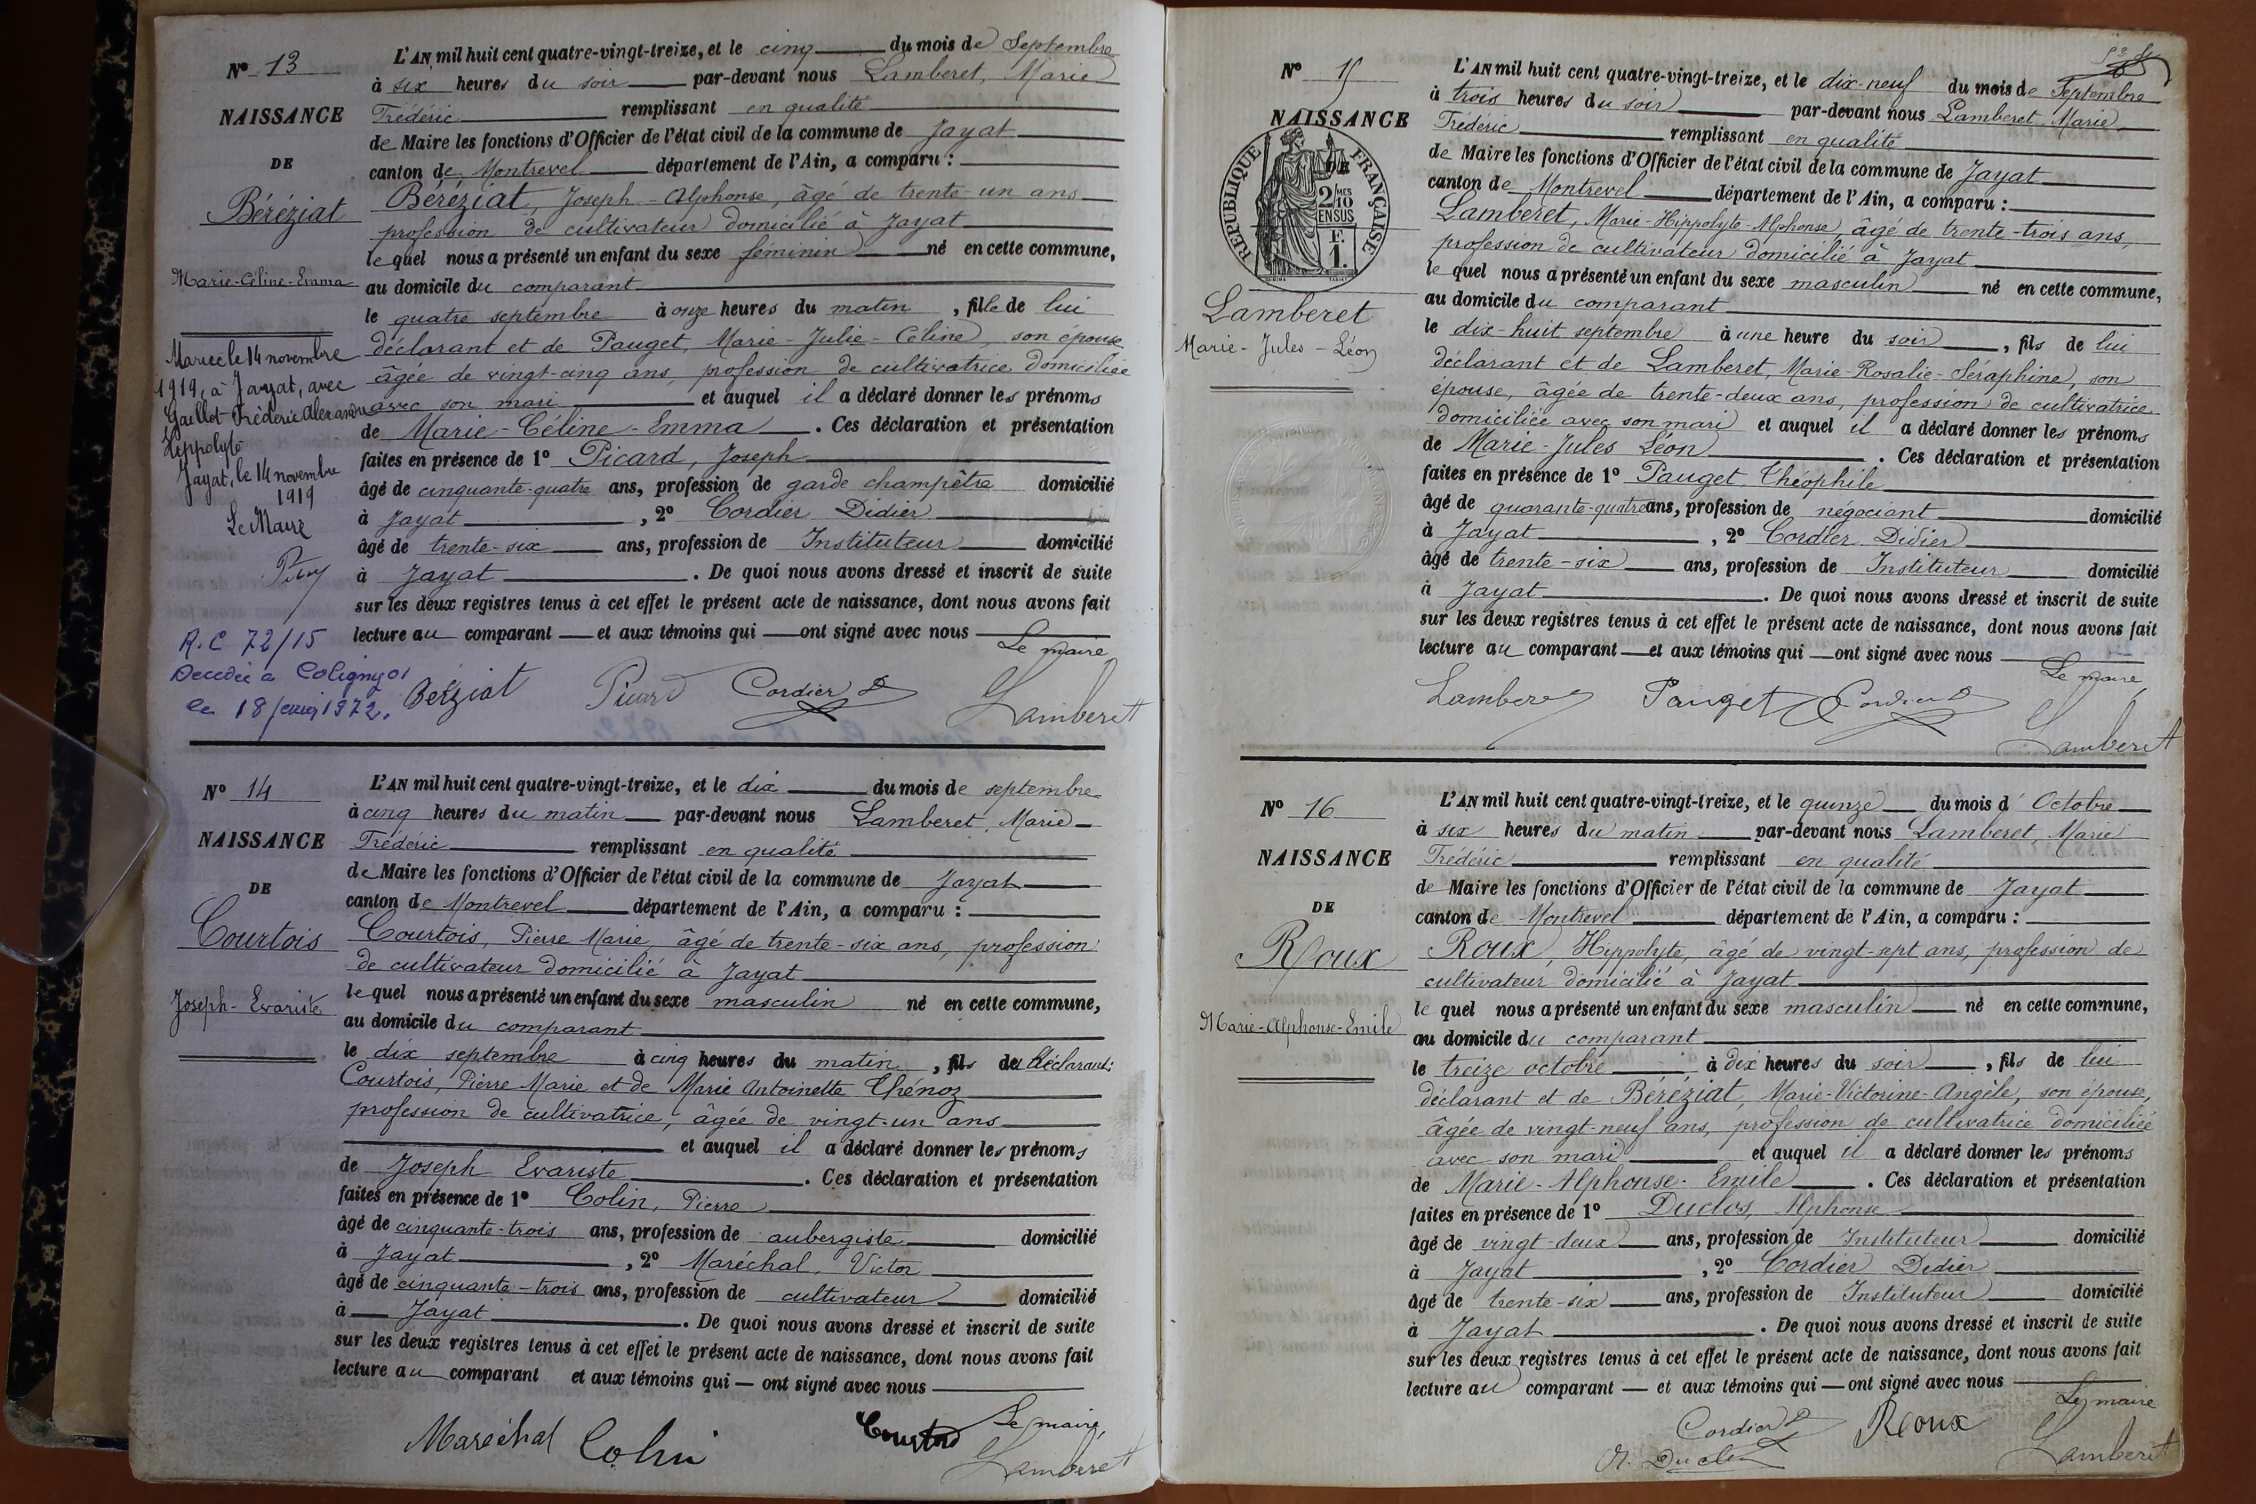 N° 13
NAISSANCE
DE
Béréziat
Marie-Céline-Emma
Mariée le 14 novembre
1919, à Jayat, avec
Gaillot Frédéric Alexandre
Hippolyte
Jayat, le 14 novembre
1919
Le Maire
R.C 72/15
Décédée à Coligny 01
le 18 1972.
L'AN mil huit cent quatre-vingt-treize, et le cinq du mois de Septembre
à six heures du soir par-devant nous Lamberet, Marie
Frédéric remplissant en qualité
de Maire les fonctions d'Officier de l'état civil de la commune de Jayat
canton de Montrevel département de l'Ain, a comparu :
Béréziat, Joseph-Alphonse, âgé de trente-un ans
profession de cultivateur domicilié à Jayat
lequel nous a présenté un enfant du sexe féminin né en cette commune,
au domicile du comparant
le quatre septembre à onze heures du matin, fille de lui
déclarant et de Pauget, Marie-Julie-Céline, son épouse
âgée de vingt-cinq ans, profession de cultivatrice domiciliée
avec son mari et auquel il a déclaré donner les prénoms
de Marie-Céline-Emma. Ces déclaration et présentation
faites en présence de 1° Picard, Joseph
âgé de cinquante-quatre ans, profession de garde champêtre domicilié
à Jayat, 2° Cordier Didier
âgé de trente-six ans, profession de Instituteur domicilié
à Jayat. De quoi nous avons dressé et inscrit de suite
sur les deux registres tenus à cet effet le présent acte de naissance, dont nous avons fait
lecture au comparant et aux témoins qui ont signé avec nous
Le maire
Béréziat Picard Cordier D Lamberet
N° 14
NAISSANCE
DE
Courtois
Joseph-Evariste
L'AN mil huit cent quatre-vingt-treize, et le dix du mois de septembre
à cinq heures du matin par-devant nous Lamberet, Marie
Frédéric remplissant en qualité
de Maire les fonctions d'Officier de l'état civil de la commune de Jayat
canton de Montrevel département de l'Ain, a comparu :
Courtois, Pierre Marie, âgé de trente-six ans, profession
de cultivateur domicilié à Jayat
lequel nous a présenté un enfant du sexe masculin né en cette commune,
au domicile du comparant
le dix septembre à cinq heures du matin, fils du déclarant:
Courtois, Pierre Marie et de Marie Antoinette Thénoz
profession de cultivatrice, âgée de vingt-un ans
et auquel il a déclaré donner les prénoms
de Joseph Evariste. Ces déclaration et présentation
faites en présence de 1° Colin, Pierre
âgé de cinquante-trois ans, profession de aubergiste domicilié
à Jayat, 2° Maréchal, Victor
âgé de cinquante-trois ans, profession de cultivateur domicilié
à Jayat. De quoi nous avons dressé et inscrit de suite
sur les deux registres tenus à cet effet le présent acte de naissance, dont nous avons fait
lecture au comparant et aux témoins qui — ont signé avec nous
Le maire,
Maréchal Colin Courtois Lamberet
N° 15
NAISSANCE
DE
RÉPUBLIQUE FRANÇAISE
2/10 MES
EN SUS
F.
1.
Lamberet
Marie-Jules-Léon
L'AN mil huit cent quatre-vingt-treize, et le dix-neuf du mois de Septembre
à trois heures du soir par-devant nous Lamberet Marie
Frédéric remplissant en qualité
de Maire les fonctions d'Officier de l'état civil de la commune de Jayat
canton de Montrevel département de l'Ain, a comparu :
Lamberet, Marie-Hippolyte-Alphonse, âgé de trente-trois ans,
profession de cultivateur domicilié à Jayat
lequel nous a présenté un enfant du sexe masculin né en cette commune,
au domicile du comparant
le dix-huit septembre à une heure du soir, fils de lui
déclarant et de Lamberet, Marie-Rosalie-Séraphine, son
épouse, âgée de trente-deux ans, profession de cultivatrice
domiciliée avec son mari et auquel il a déclaré donner les prénoms
de Marie-Jules Léon. Ces déclaration et présentation
faites en présence de 1° Pauget Théophile
âgé de quarante-quatre ans, profession de négociant domicilié
à Jayat, 2° Cordier Didier
âgé de trente-six ans, profession de Instituteur domicilié
à Jayat. De quoi nous avons dressé et inscrit de suite
sur les deux registres tenus à cet effet le présent acte de naissance, dont nous avons fait
lecture au comparant — et aux témoins qui — ont signé avec nous
Le maire
Lamberet Pauget Cordier D Lamberet
N° 16
NAISSANCE
DE
Roux
Marie-Alphonse-Emile
L'AN mil huit cent quatre-vingt-treize, et le quinze du mois d'Octobre
à six heures du matin par-devant nous Lamberet Marie
Frédéric remplissant en qualité
de Maire les fonctions d'Officier de l'état civil de la commune de Jayat
canton de Montrevel département de l'Ain, a comparu :
Roux, Hippolyte, âgé de vingt-sept ans, profession de
cultivateur domicilié à Jayat
lequel nous a présenté un enfant du sexe masculin né en cette commune,
au domicile du comparant
le treize octobre à dix heures du soir, fils de lui
déclarant et de Béréziat, Marie-Victorine-Angèle, son épouse,
âgée de vingt neuf ans, profession de cultivatrice domiciliée
avec son mari et auquel il a déclaré donner les prénoms
de Marie-Alphonse-Emile. Ces déclaration et présentation
faites en présence de 1° Duclos, Alphonse
âgé de vingt-deux ans, profession de Instituteur domicilié
à Jayat, 2° Cordier Didier
âgé de trente-six ans, profession de Instituteur domicilié
à Jayat. De quoi nous avons dressé et inscrit de suite
sur les deux registres tenus à cet effet le présent acte de naissance, dont nous avons fait
lecture au comparant — et aux témoins qui — ont signé avec nous
Le maire
Cordier D Roux
A. Duclos Lamberet